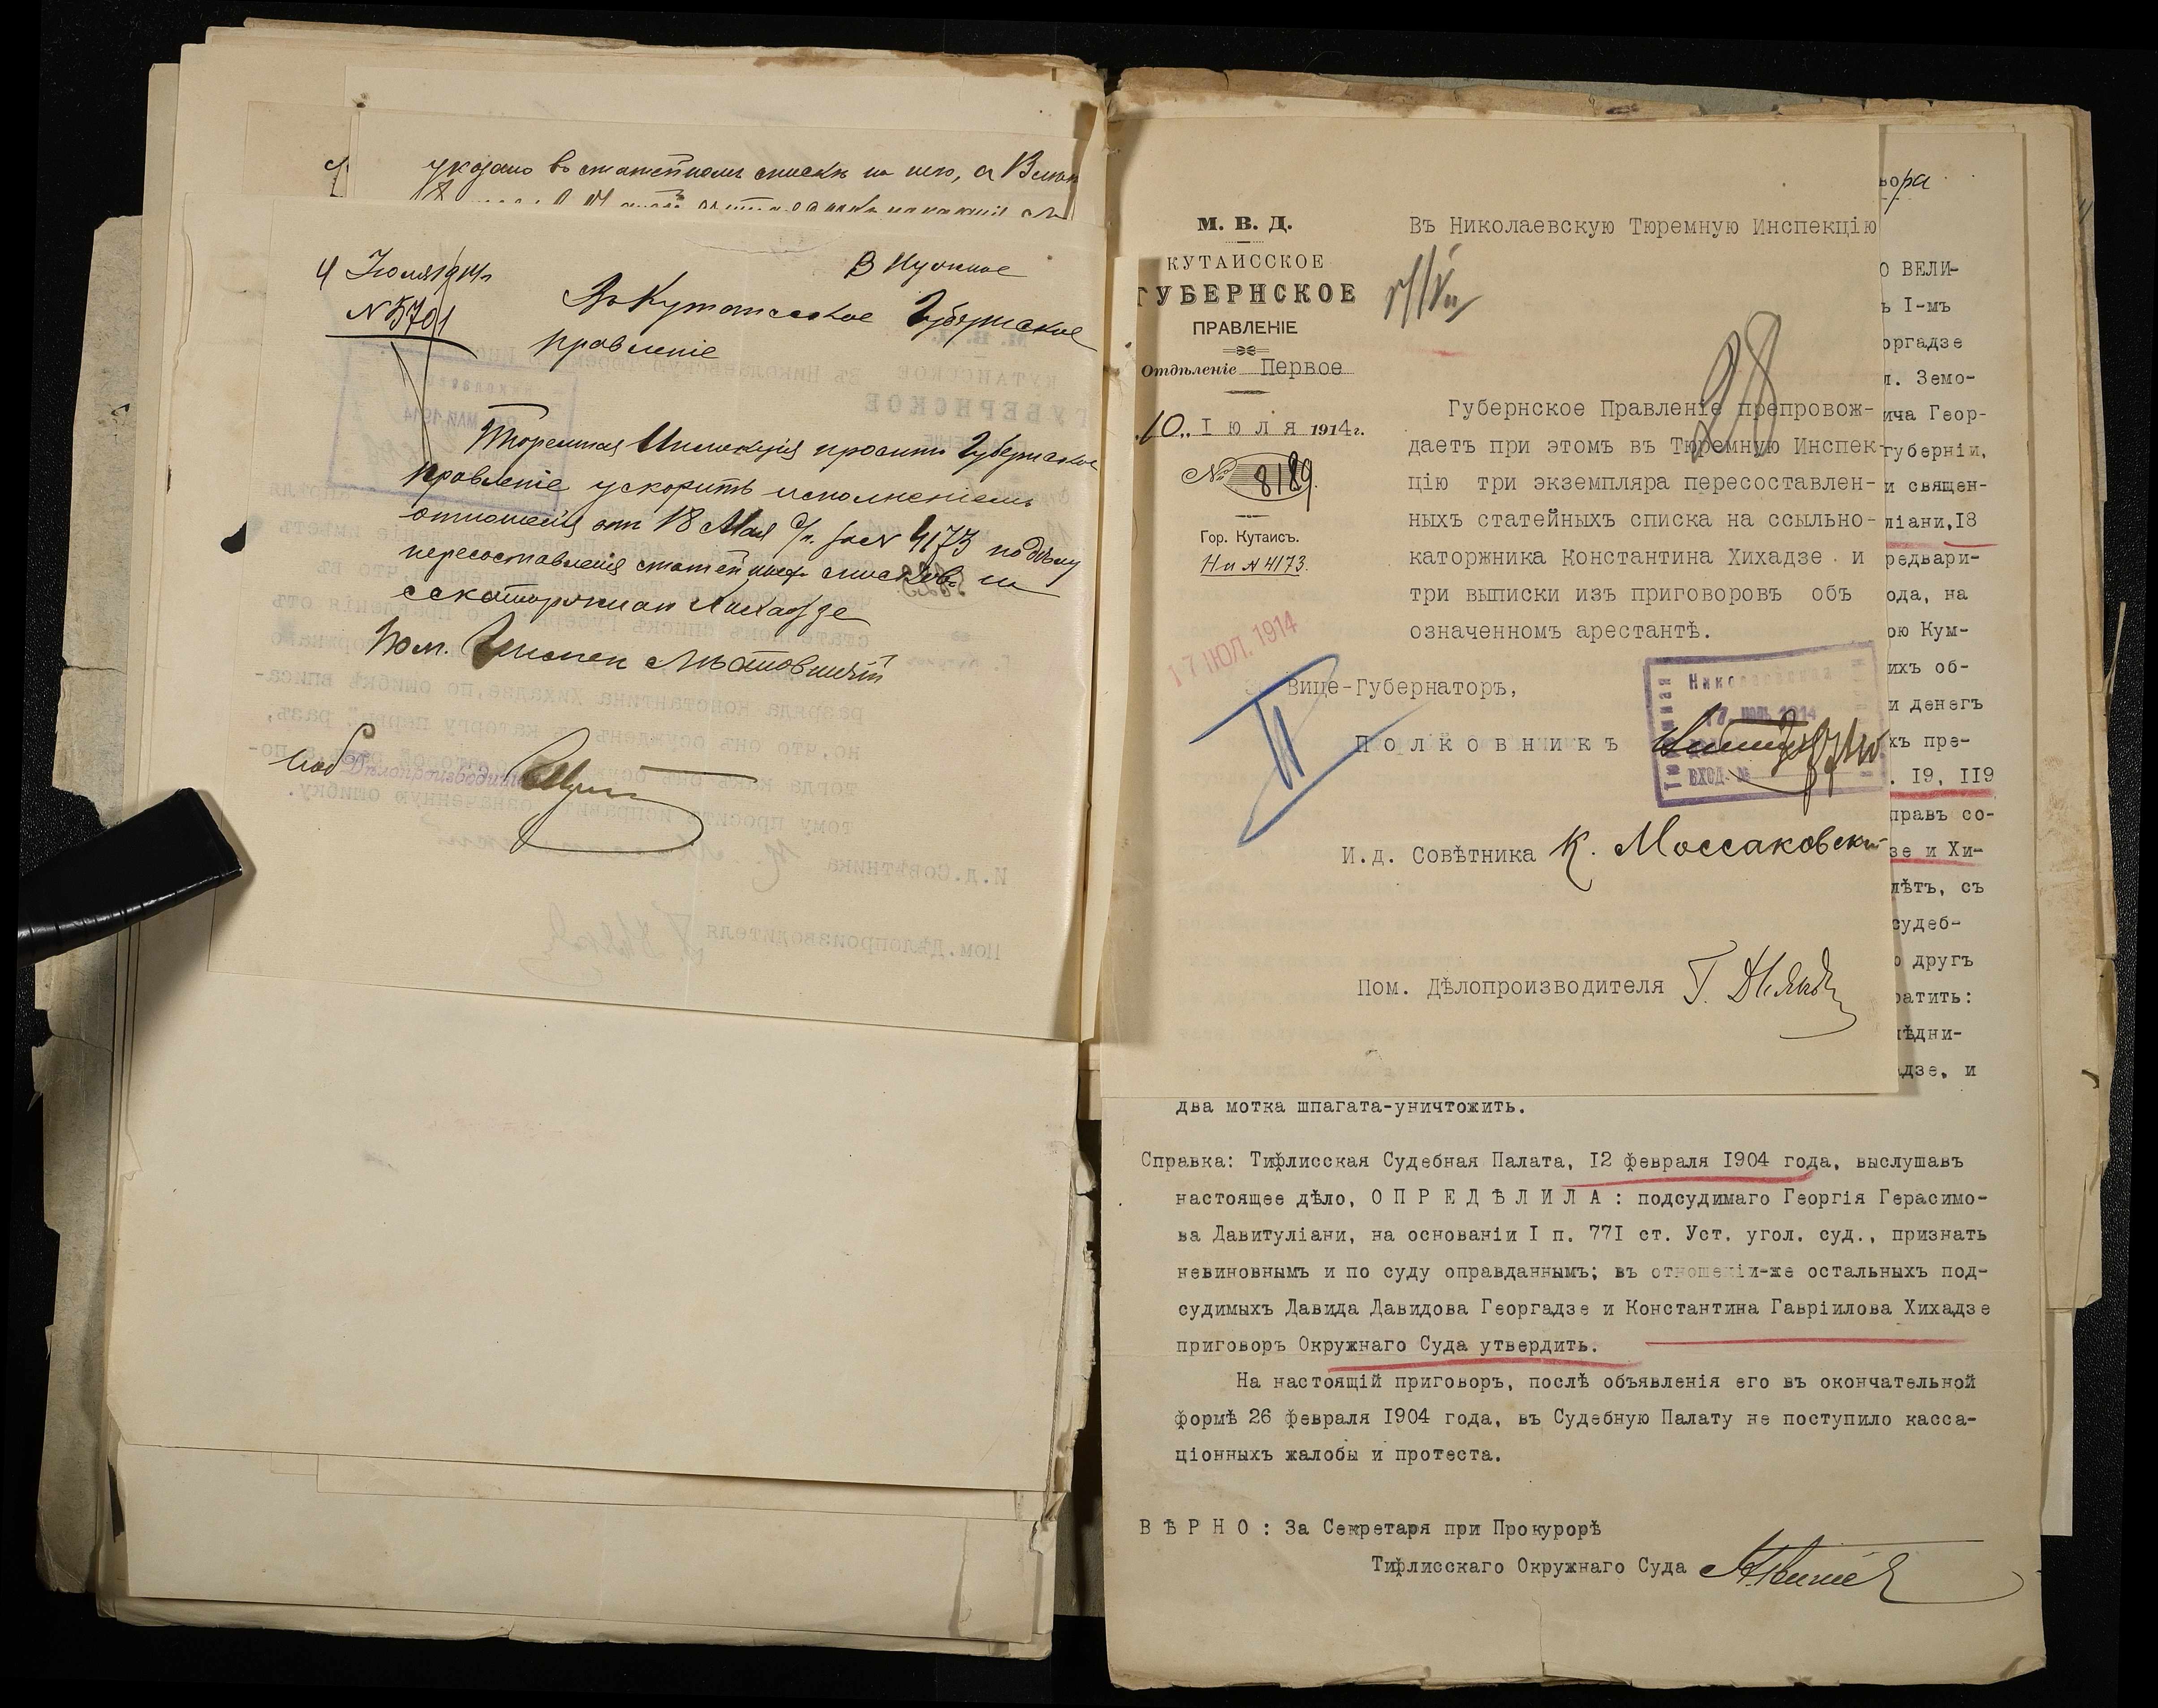 указано въ статейномъ спискѣ на него, а
4 Июля 1914 г.
№ 5701
В Кутаисское Губернское
правленіе
Тюремная Инспекція проситъ Губернское
Правленіе ускорить исполненіемъ
отношенія отъ 18 Мая с/г. за № 4173 по дѣлу
пересоставленія статейныхъ списковъ на
сскаторжнаго Хихадзе
Пом.
Дѣлопроизводит
М. В. Д.
КУТАИССКОЕ
ГУБЕРНСКОЕ
ПРАВЛЕНІЕ
Отдѣленіе Первое
10 Iюля 1914 г.
№ 8189.
Гор. Кутаисъ.
На № 4173.
17 ІЮЛ. 1914
Въ Николаевскую Тюремную Инспекцію
28
Губернское Правленіе препровож-
даетъ при этомъ въ Тюремную Инспек-
цію три экземпляра пересоставлен-
ныхъ статейныхъ списка на ссыльно-
каторжника Константина Хихадзе и
три выписки изъ приговоровъ объ
означенномъ арестантѣ.
Вице-Губернаторъ,
Полковникъ
Николаевская
Тюремная
17 ІЮЛ 1914
ВХОД. №
И.д. Совѣтника К. Моссаковскій
Пом. Дѣлопроизводителя
вора
О ВЕЛИ-
ъ I-мъ
оргадзе
л. Земо-
ича Геор-
губерніи,
и священ-
ліани,18
редвари-
ода, на
ою Кум-
ихъ об-
и денегъ
хъ пре-
. 19, 119
правъ со-
зе и Хи-
лѣтъ, съ
судеб-
о другъ
ратить:
лѣдни-
адзе, и
два мотка шпагата-уничтожить.
Справка: Тифлисская Судебная Палата, I2 февраля I904 года, выслушавъ
настоящее дѣло, ОПРЕДѢЛИЛА: подсудимаго Георгія Герасимо-
ва Давитуліани, на основаніи I п. 77I ст. Уст. угол. суд., признать
невиновнымъ и по суду оправданнымъ; въ отношеніи-же остальныхъ под-
судимыхъ Давида Давидова Георгадзе и Константина Гавріилова Хихадзе
приговоръ Окружнаго Суда утвердить.
На настоящій приговоръ, послѣ объявленія его въ окончательной
формѣ 26 февраля I904 года, въ Судебную Палату не поступило касса-
ціонныхъ жалобы и протеста.
ВѢРНО: За Секретаря при Прокурорѣ
Тифлисскаго Окружнаго Суда